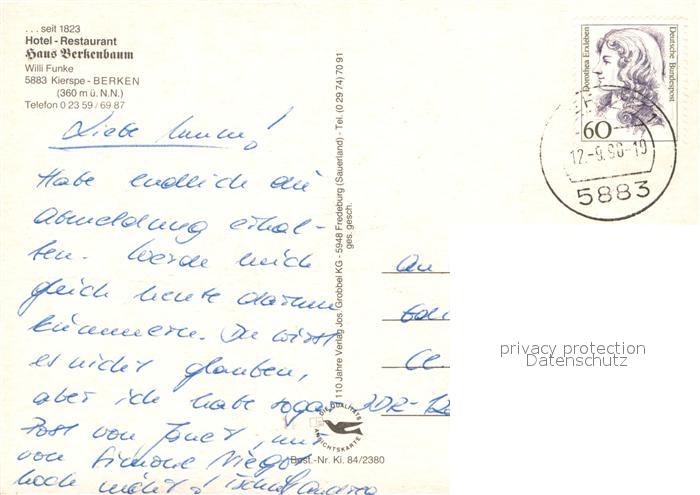 . . . seit 1823
Hotel - Restaurant
Haus Berkenbaum
Willi Funke
5883 Kierspe - BERKEN
(360 m ü. N.N.)
Telefon 0 23 59 / 69 87
Liebe
Habe endlich die
Abmeldung erhal-
ten. Werde mich
gleich heute darum
kümmern. Du wirst
es nicht glauben,
aber ich habe sogar
Post von Janet, nur
von Simone
noch nicht! Tschüß Andrea
110 Jahre Verlag Jos. Grobbel KG - 5948 Fredeburg (Sauerland) - Tel. (0 29 74) 70 91
ges. gesch.
DIE QUALITÄTS
ANSICHTSKARTE
Best.-Nr. Ki. 84/2380
Dorothea Erxleben
Deutsche Bundespost
60
12.-9.90-10
5883
An
DDR-12
privacy protection
Datenschutz